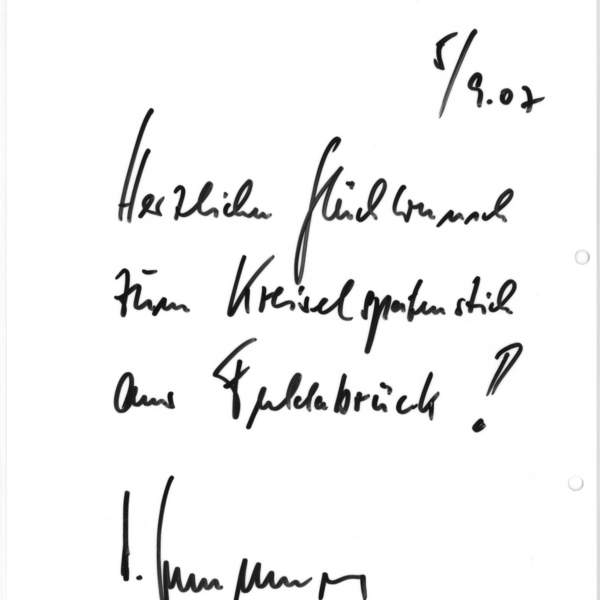 5/9.07
Herzlichen Glückwunsch
zum Kreiselspatenstich
aus Fuldabrück!